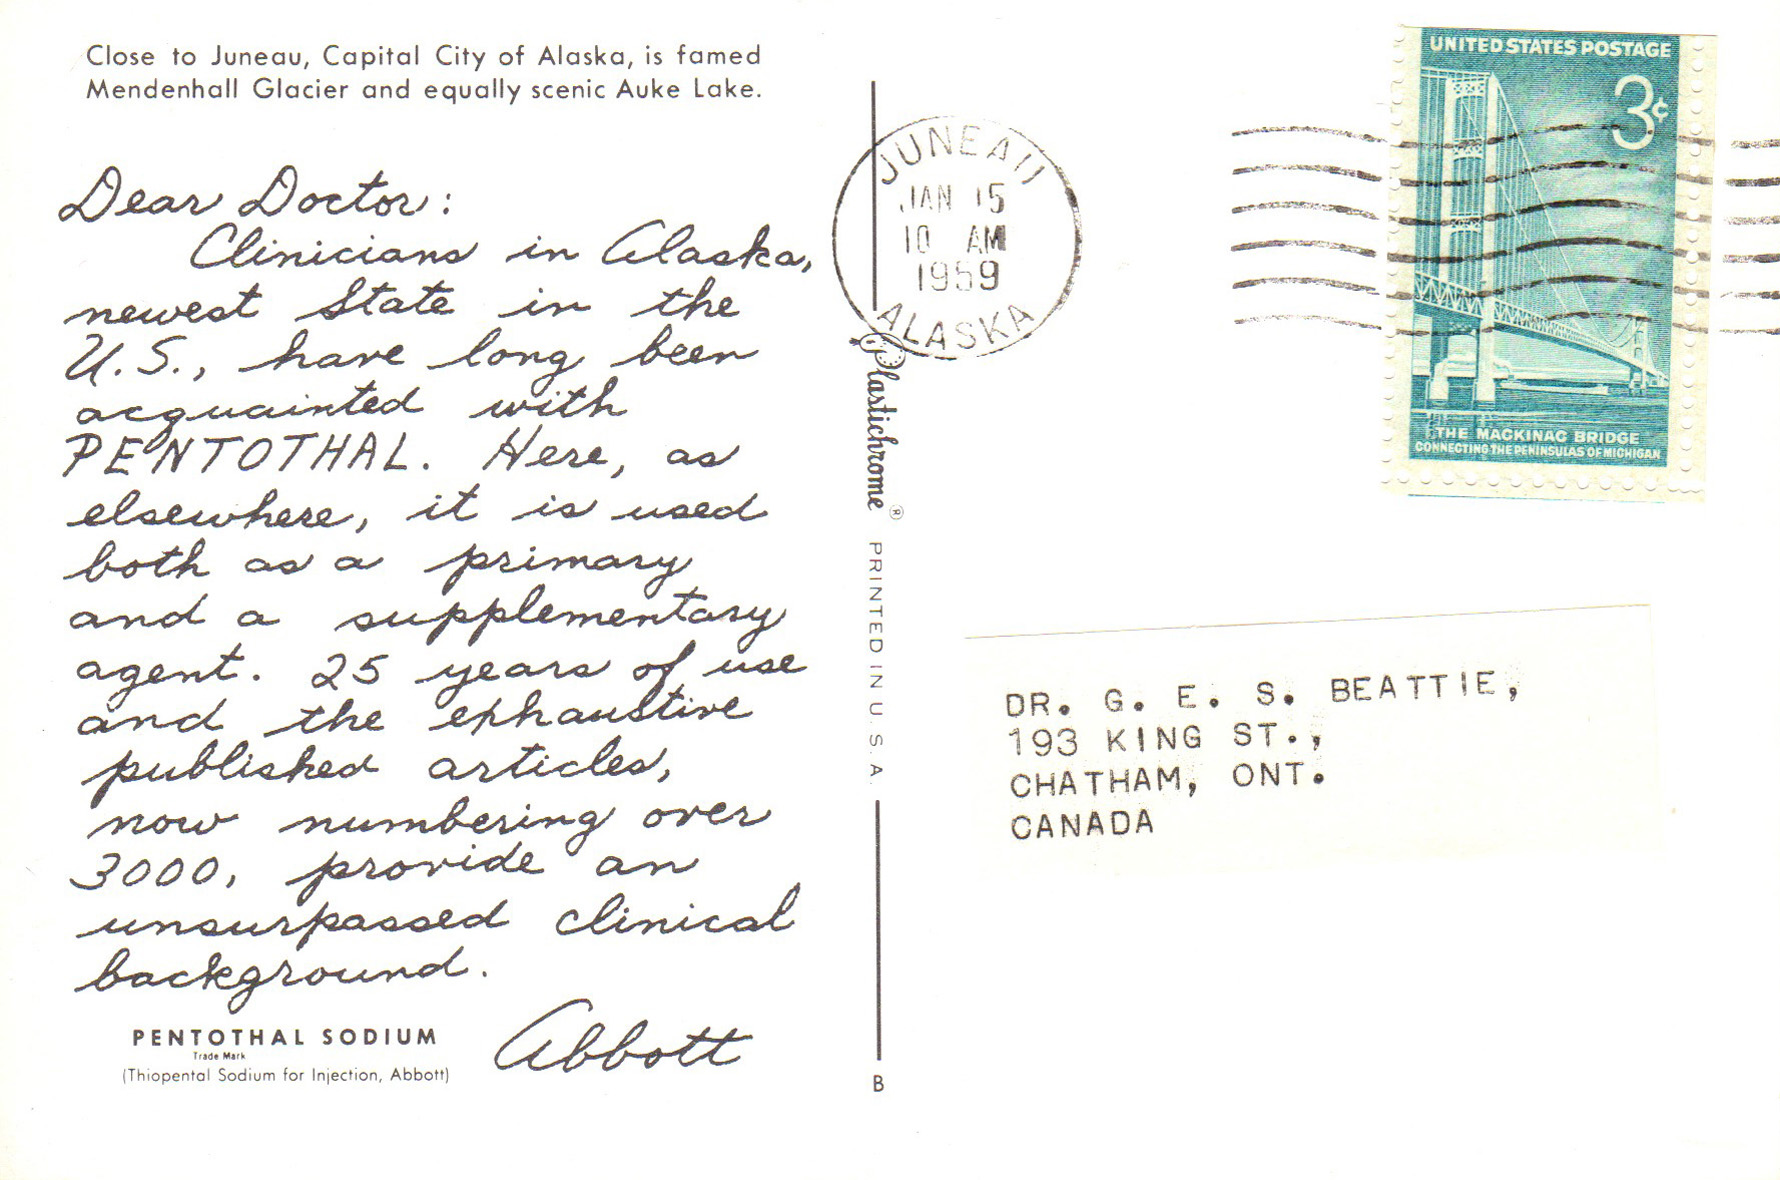 Close to Juneau, Capital City of Alaska, is famed
Mendenhall Glacier and equally scenic Auke Lake.
Dear Doctor:
Clinicians in Alaska,
newest State in the
U.S., have long been
acquainted with
PENTOTHAL. Here, as
elsewhere, it is used
both as a primary
and a supplementary
agent. 25 years of use
and the exhaustive
published articles,
now numbering over
3000, provide an
unsurpassed clinical
background.
Abbott
PENTOTHAL SODIUM
Trade Mark
(Thiopental Sodium for Injection, Abbott)
Plastichrome ® PRINTED IN U. S. A.
B
JUNEAU
JAN 15
10 AM
1959
ALASKA
UNITED STATES POSTAGE
3¢
THE MACKINAC BRIDGE
CONNECTING THE PENINSULAS OF MICHIGAN
DR. G. E. S. BEATTIE,
193 KING ST.,
CHATHAM, ONT.
CANADA